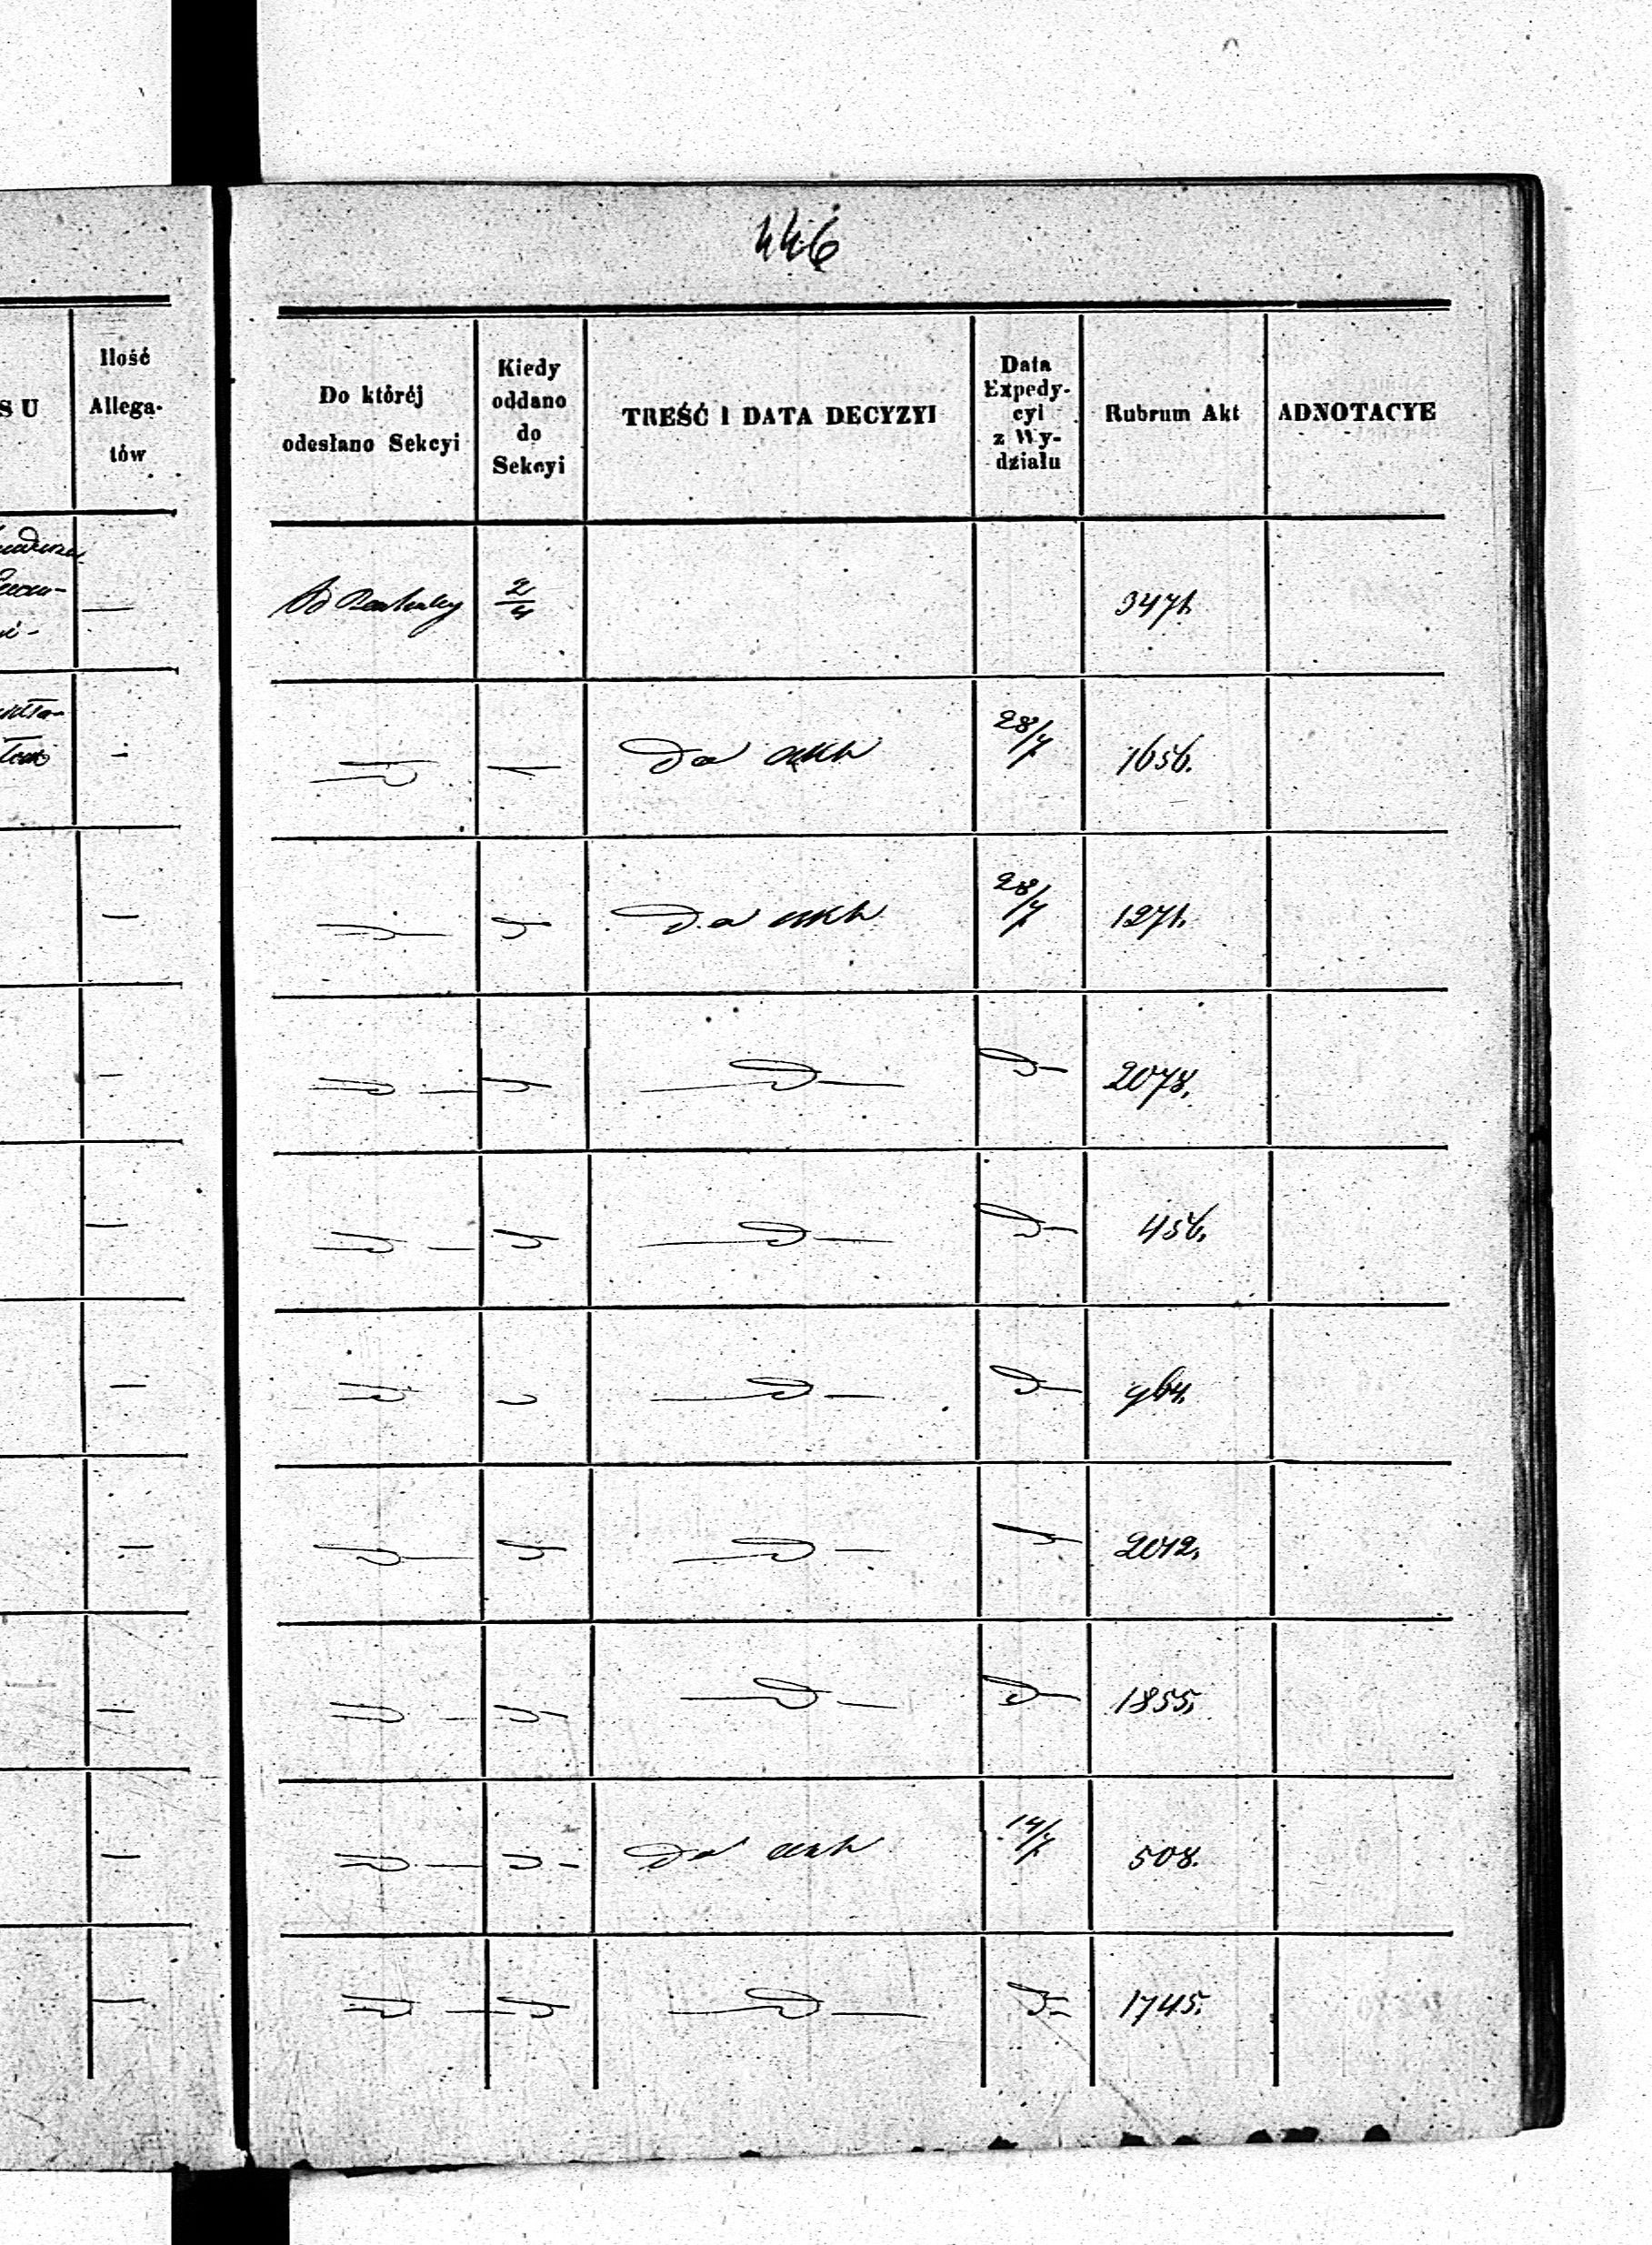 446
Ilość
Allega-
tów
SU
Do któréj
odesłano Sekcyi
Kiedy
oddano
do
Sekcyi
TREŚĆ I DATA DECYZYI
Data
Expedy-
cyi
z Wy-
działu
Rubrum Akt
ADNOTACYE
2/4
3471.
Do akt
28/7
1656.
Do akt
28/7
1271.
2078.
456.
964.
2012.
1855.
Do akt
14/7
508.
1745.